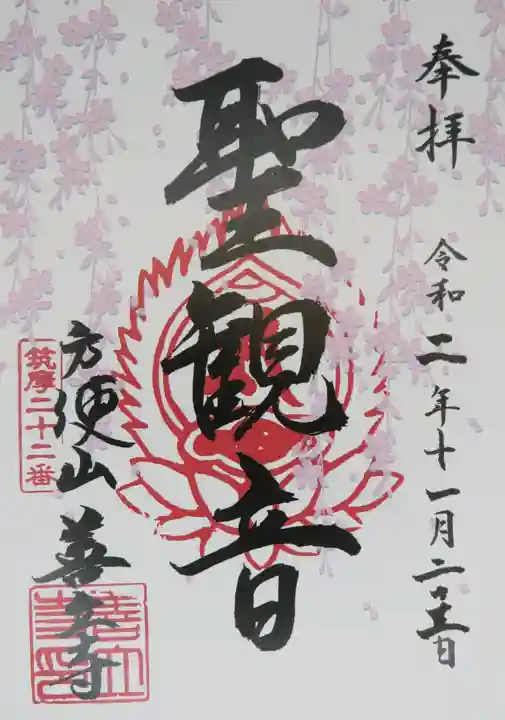 奉拝
令和二年十一月二日
聖観音
方便山 善立寺
筑摩二十二番
善立寺印